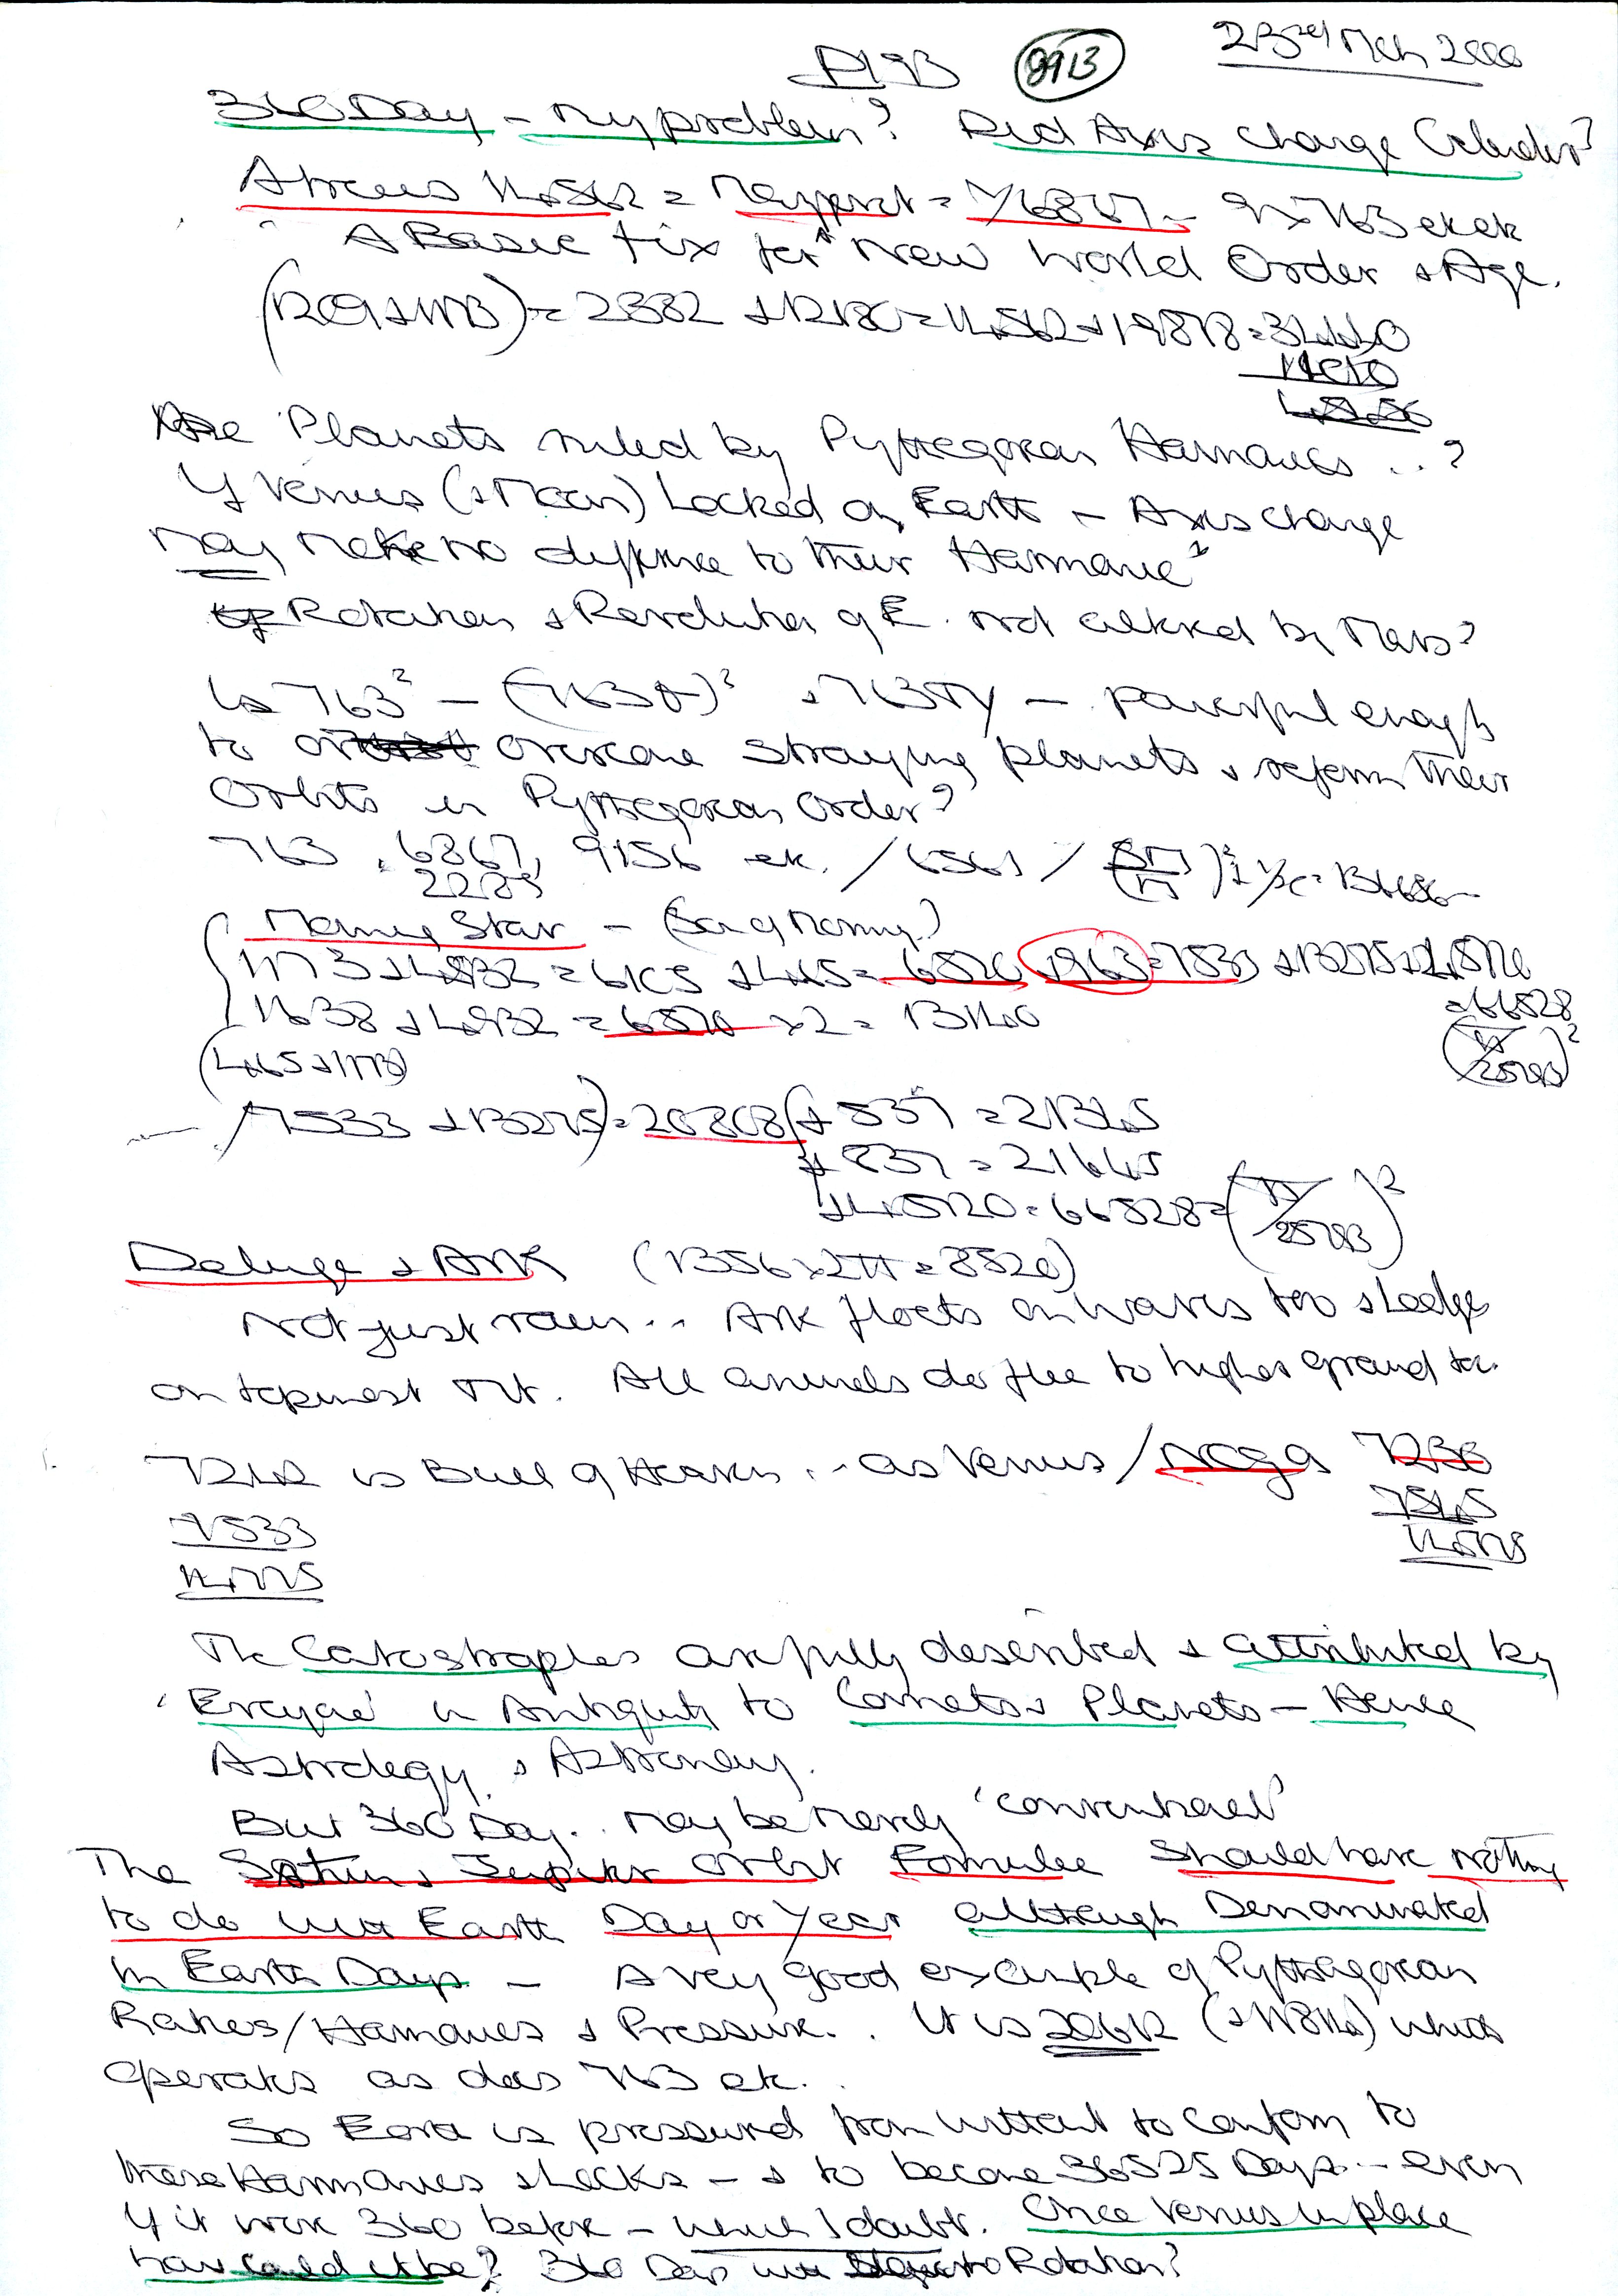 P193 9913 23rd Mch 2000
360 Day - my problem? Did Axis change Calendar?
Atreus 14562 = Megiprat = 1/6867 - 9 x 763 etc etc
A Basic fix for New World Order & Age.
(1209 + 1173) = 2382 + 12180 = 14562 + 19878 = 34440
Are Planets ruled by Pythagorean Harmonics ..?
If Venus (& Moon) Locked on Earth - Axis change
may make no difference to their Harmonic?
Rotation & Revolution of E. not altered by Mars?
Is 763² - (763π)² & 763π/ - powerful enough
to overcome straying planets & reform their
Orbits in Pythagorean Order?
763, 6867, 9156 etc. / 6561 /
2289
Morning Star - (Son of Morning?)
1173 + 4932 = 6105 + 465 = 6570 + 963 = 7533 + 13275 + 45720
1638 + 4932 = 6570 x 2 = 13140 = 66528
(465 + 1173)
7533 + 13275) = 20808 (+ 537 = 21345
+ 837 = 21645
+ 45720 = 66528 =
Deluge & Ark (1356 x 2π = 8520)
Not just rain.. Ark floats on waves too & Lodge
on topmost Mt. All animals do flee to higher ground too.
7242 is Bull of Heaven .. as Venus / 7230
7533 7545
14775 14775
The Catastrophes are fully described & attributed by
'Everyone' in Antiquity to Comets & Planets - Hence
Astrology & Astronomy.
But 360 Day.. may be merely 'conventional'
The Saturn & Jupiter orbit Formulae should have nothing
to do with Earth Day or Year although Denominated
in Earth Days - A very good example of Pythagorean
Ratios/Harmonics & Pressure.. It is 20612 (& 11814) which
operates as does 763 etc..
So Earth is pressured from without to conform to
these Harmonics & Locks - & to become 36525 Days.. - even
if it were 360 before - which I doubt. Once Venus in place
how could it be? 360 Days with Rotation?